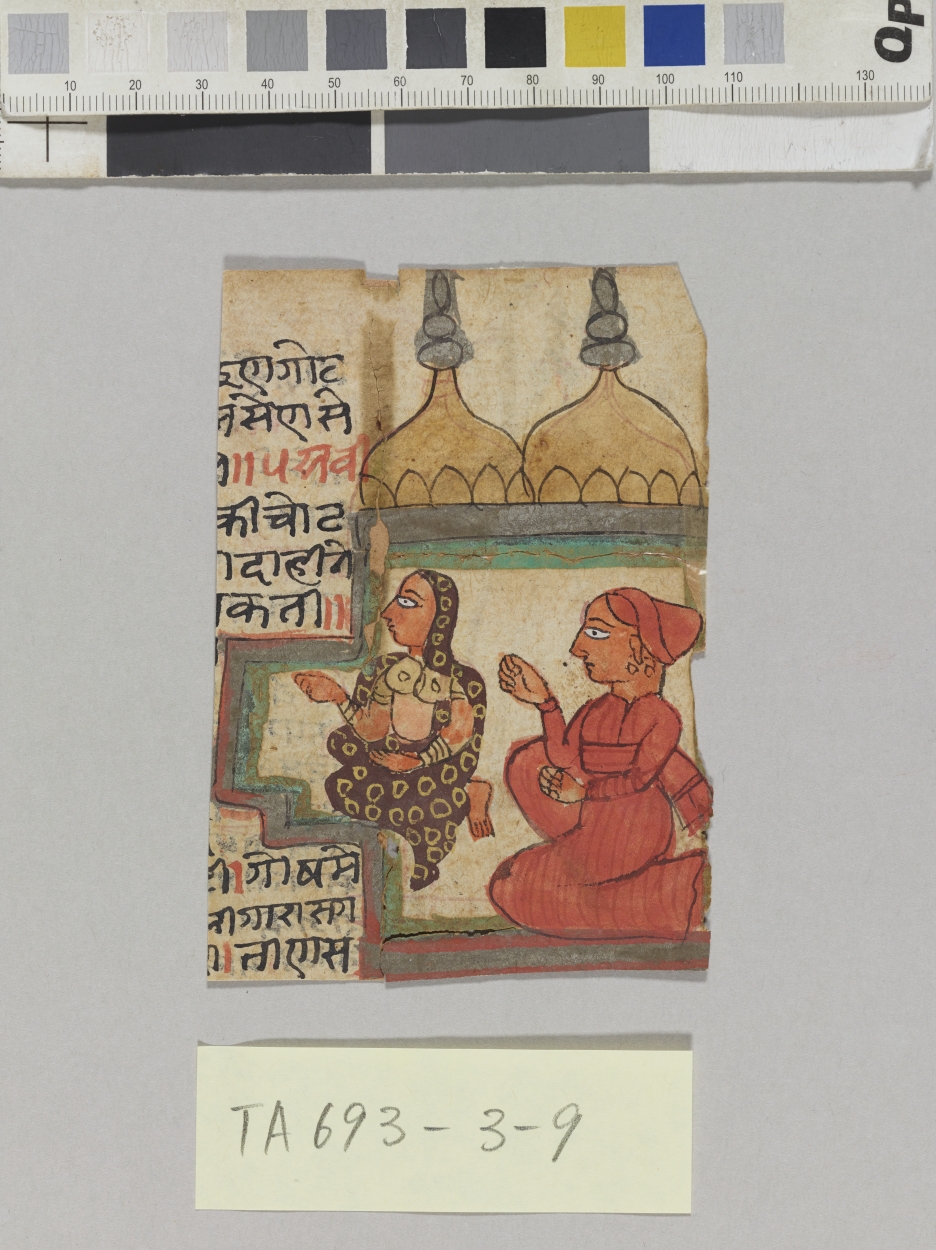 10 20 30 40 50 60 70 80 90 100 110 130
QP
एगोट
सेएसे
॥५अवी
कीचोट
दाहीने
कती॥
।गोषमे
गारासग
।तीएस
TA693-3-9